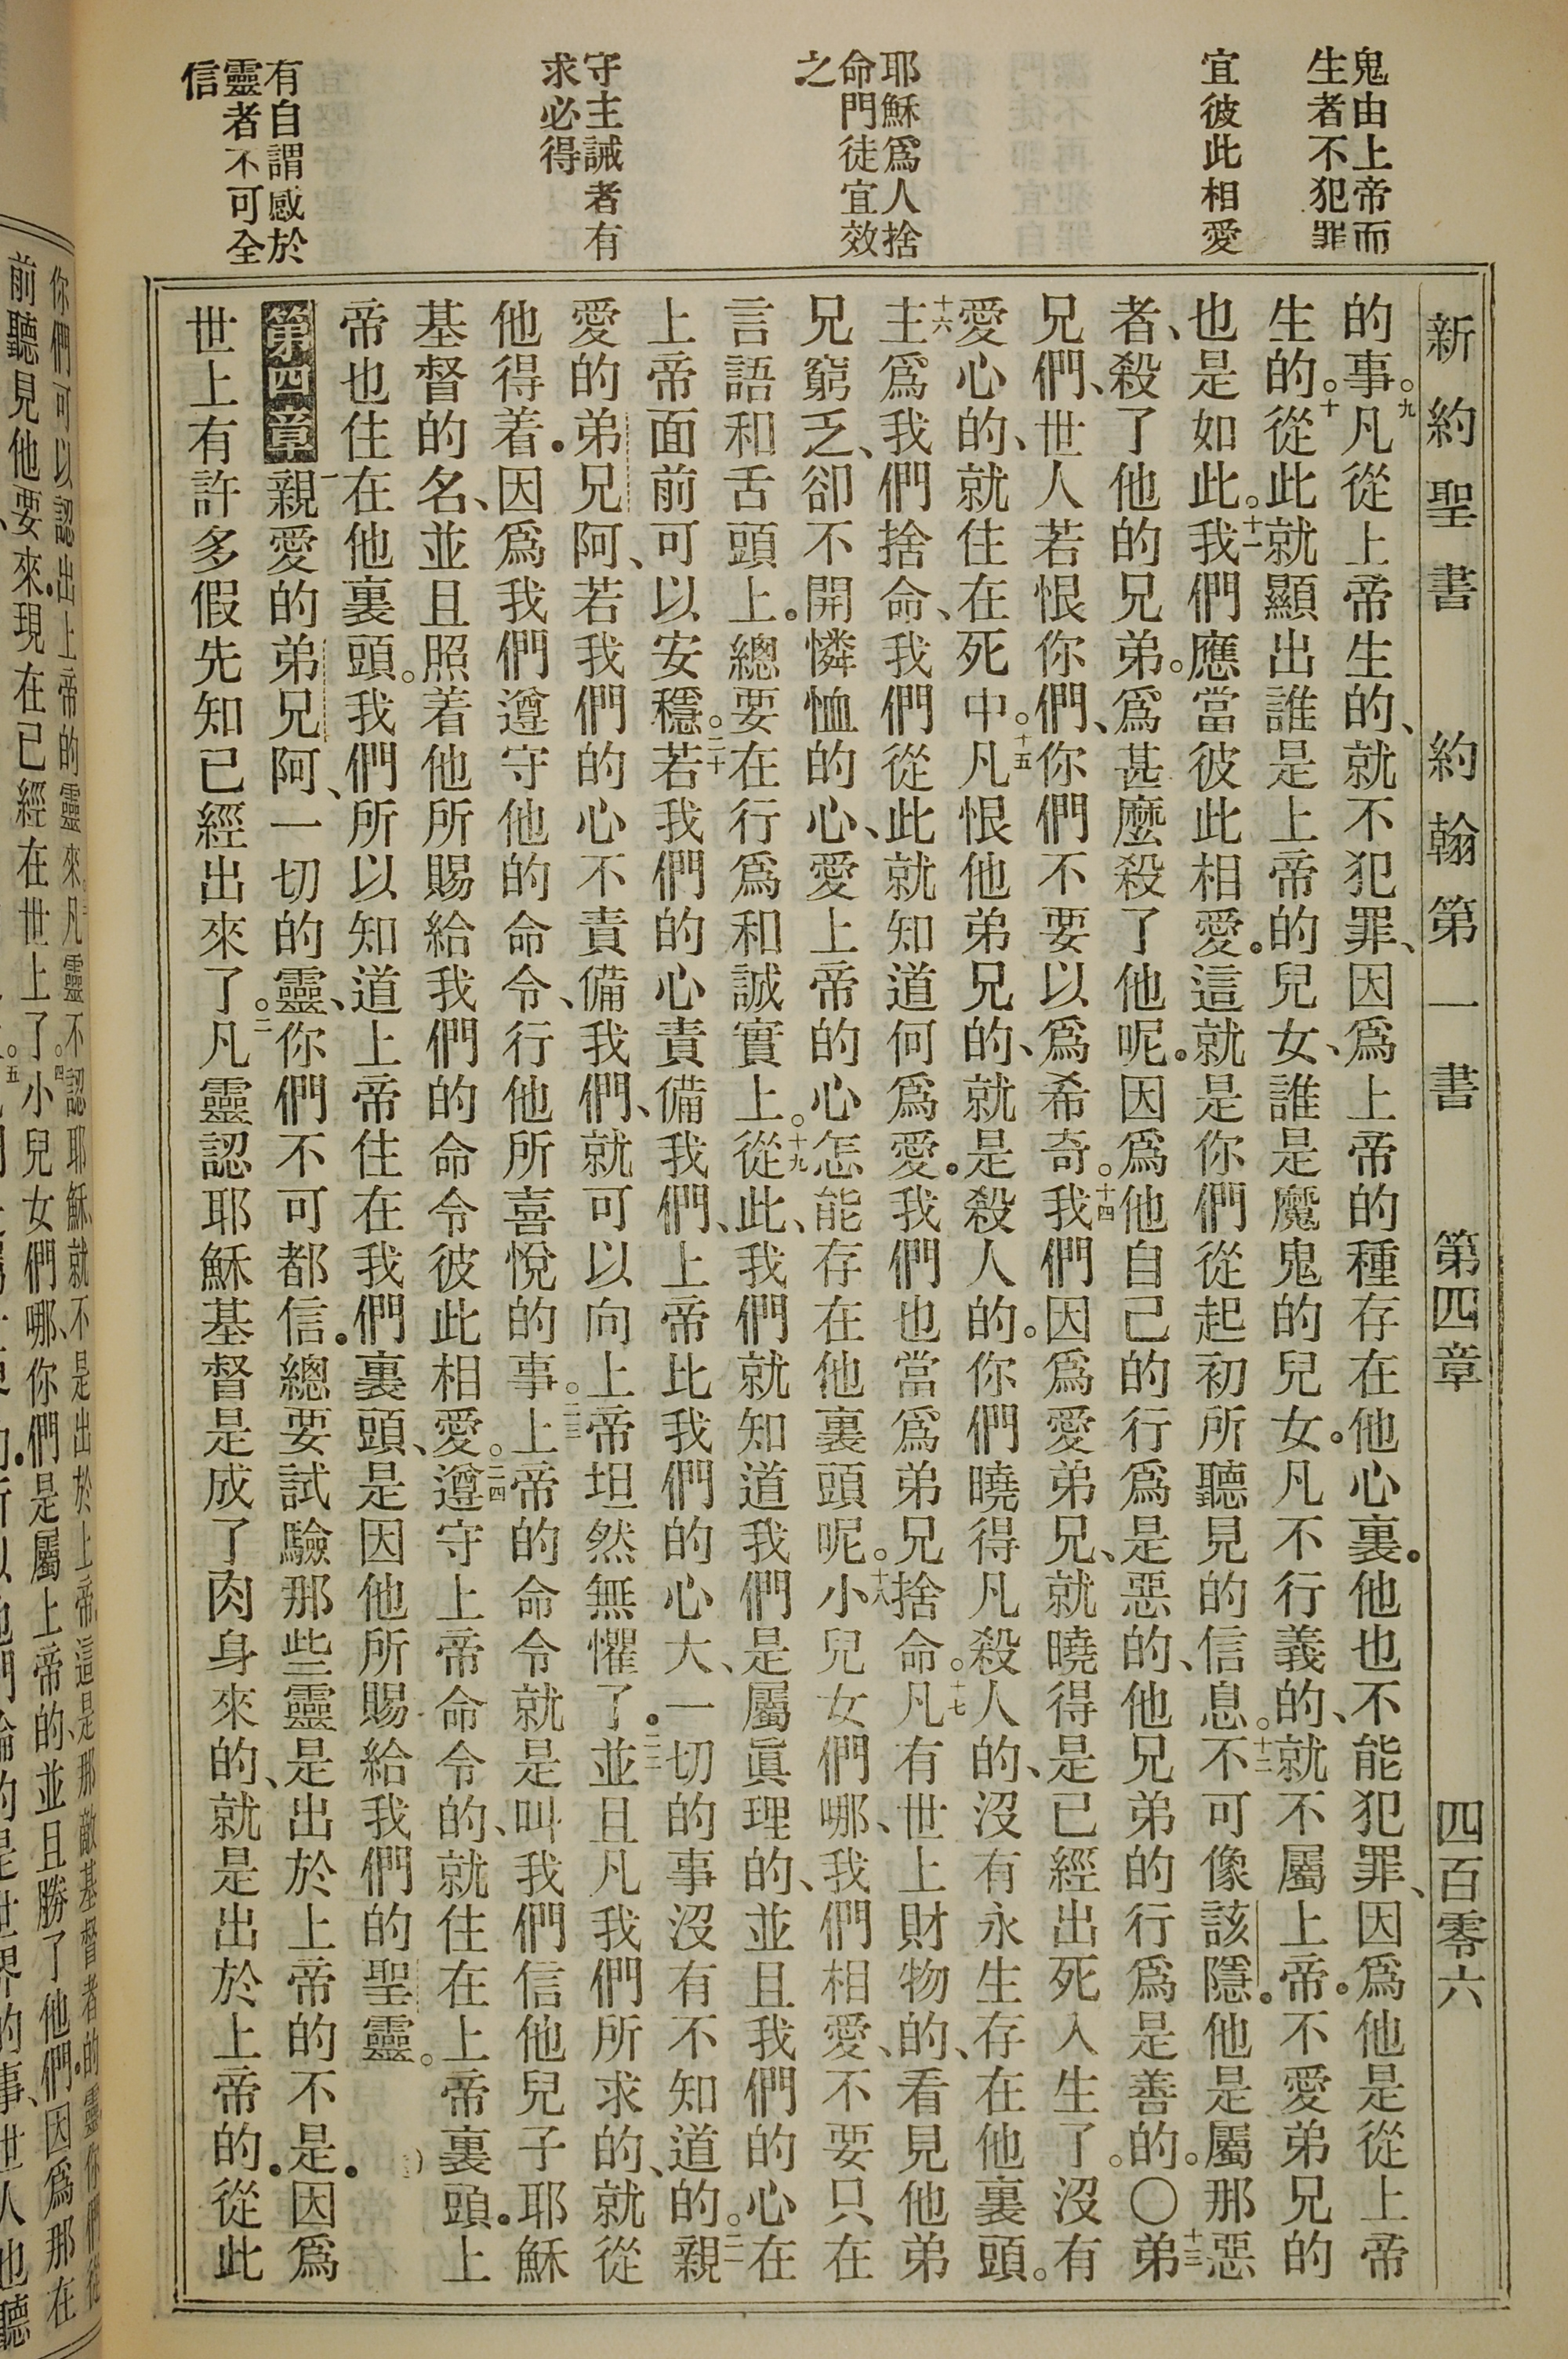 鬼由上帝而
生者不犯罪
宜彼此相愛
耶穌爲人捨
命門徒宜效
之
守主誡者有
求必得
有自謂感於
靈者不可全
信
新約聖書 約翰第一書 第四章 四百零六
的事。九凡從上帝生的、就不犯罪、因爲上帝的種存在他心裏．他也不能犯罪、因爲他是從上帝
生的。十從此就顯出誰是上帝的兒女、誰是魔鬼的兒女．凡不行義的、就不屬上帝．不愛弟兄的
也是如此。十一我們應當彼此相愛．這就是你們從起初所聽見的信息。十二不可像該隱．他是屬那惡
者、殺了他的兄弟。爲甚麼殺了他呢．因爲他自己的行爲是惡的、他兄弟的行爲是善的。〇十三弟
兄們、世人若恨你們、你們不要以爲希奇。十四我們因爲愛弟兄、就曉得是已經出死入生了。沒有
愛心的、就住在死中。十五凡恨他弟兄的、就是殺人的。你們曉得凡殺人的、沒有永生存在他裏頭。
十六主爲我們捨命、我們從此就知道何爲愛．我們也當爲弟兄捨命。十七凡有世上財物的、看見他弟
兄窮乏、卻不開憐恤的心、愛上帝的心怎能存在他裏頭呢。十八小兒女們哪、我們相愛、不要只在
言語和舌頭上．總要在行爲和誠實上。十九從此、我們就知道我們是屬眞理的、並且我們的心在
上帝面前可以安穩。二十若我們的心責備我們、上帝比我們的心大、一切的事沒有不知道的。二一親
愛的弟兄阿、若我們的心不責備我們、就可以向上帝坦然無懼了．二二並且凡我們所求的、就從
他得着．因爲我們遵守他的命令、行他所喜悅的事。二三上帝的命令就是叫我們信他兒子耶穌
基督的名、並且照着他所賜給我們的命令彼此相愛。二四遵守上帝命令的、就住在上帝裏頭．上
帝也住在他裏頭。我們所以知道上帝住在我們裏頭、是因他所賜給我們的聖靈。
第四章 一親愛的弟兄阿、一切的靈、你們不可都信．總要試驗那些靈是出於上帝的不是．因爲
世上有許多假先知已經出來了。二凡靈認耶穌基督是成了肉身來的、就是出於上帝的．從此
你們可以認出上帝的靈來．凡靈不認耶穌、就不是出於上帝、這是那敵基督者的靈你們從
前聽見他要來、現在已經在世上了。四小兒女們哪、你們是屬上帝的、並且勝了他們．因爲那在